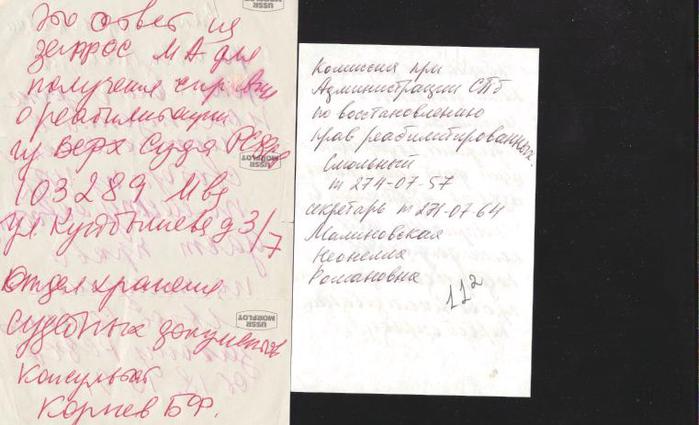 Это ответ на
запрос МА для
получения справки
о реабилитации
из Верх Суда РСФСР
103289 Мва
ул Куйбышева д 3/7
Отдел хранения
судебных документов
Консультант
Корнев БФ.
USSR
MORFLOT
USSR
MORFLOT
USSR
MORFLOT
Комиссия при
Администрации СПб
по восстановлению
прав реабилитированных.
Смольный
т 274-07-57
секретарь т 271-07 64
Малиновская
Неонелла
Романовна
112